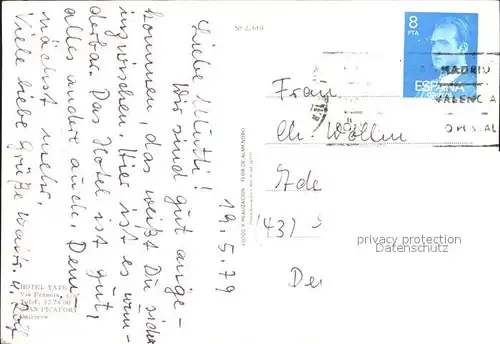 Nr. 2.610
19.5.79
Liebe Mutti!
Wir sind gut ange-
kommen, das weißt Du sicher
inzwischen. Hier ist es wun-
derbar. Das Hotel ist gut,
alles andere auch. Dem-
nächst mehr.
Viele liebe Grüße
HOTEL YATE
Via Francia, s/nº
Telef. 52 74 00
CAN PICAFORT
Mallorca
FOTOS Y REALIZACION FLOR DE ALMENDRO
8
PTA
ESPAÑA
MADRID
VALENCIA
POSTAL
Frau
Ch. Wöllm
Ade
(437)
De
privacy protection
Datenschutz